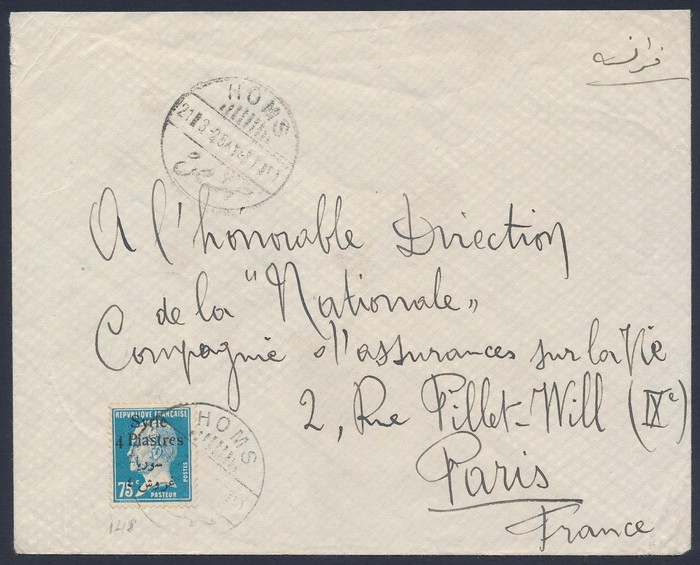 فرانسه
HOMS
حمص
A l'honorable Direction
de la "Nationale"
Compagnie d'assurances sur la Vie
2, Rue Pillet-Will (IXe)
Paris
France
HOMS
REPUBLIQUE FRANÇAISE
Syrie
4 Piastres
سوريا
غروش ٤
75c
POSTES
PASTEUR
148